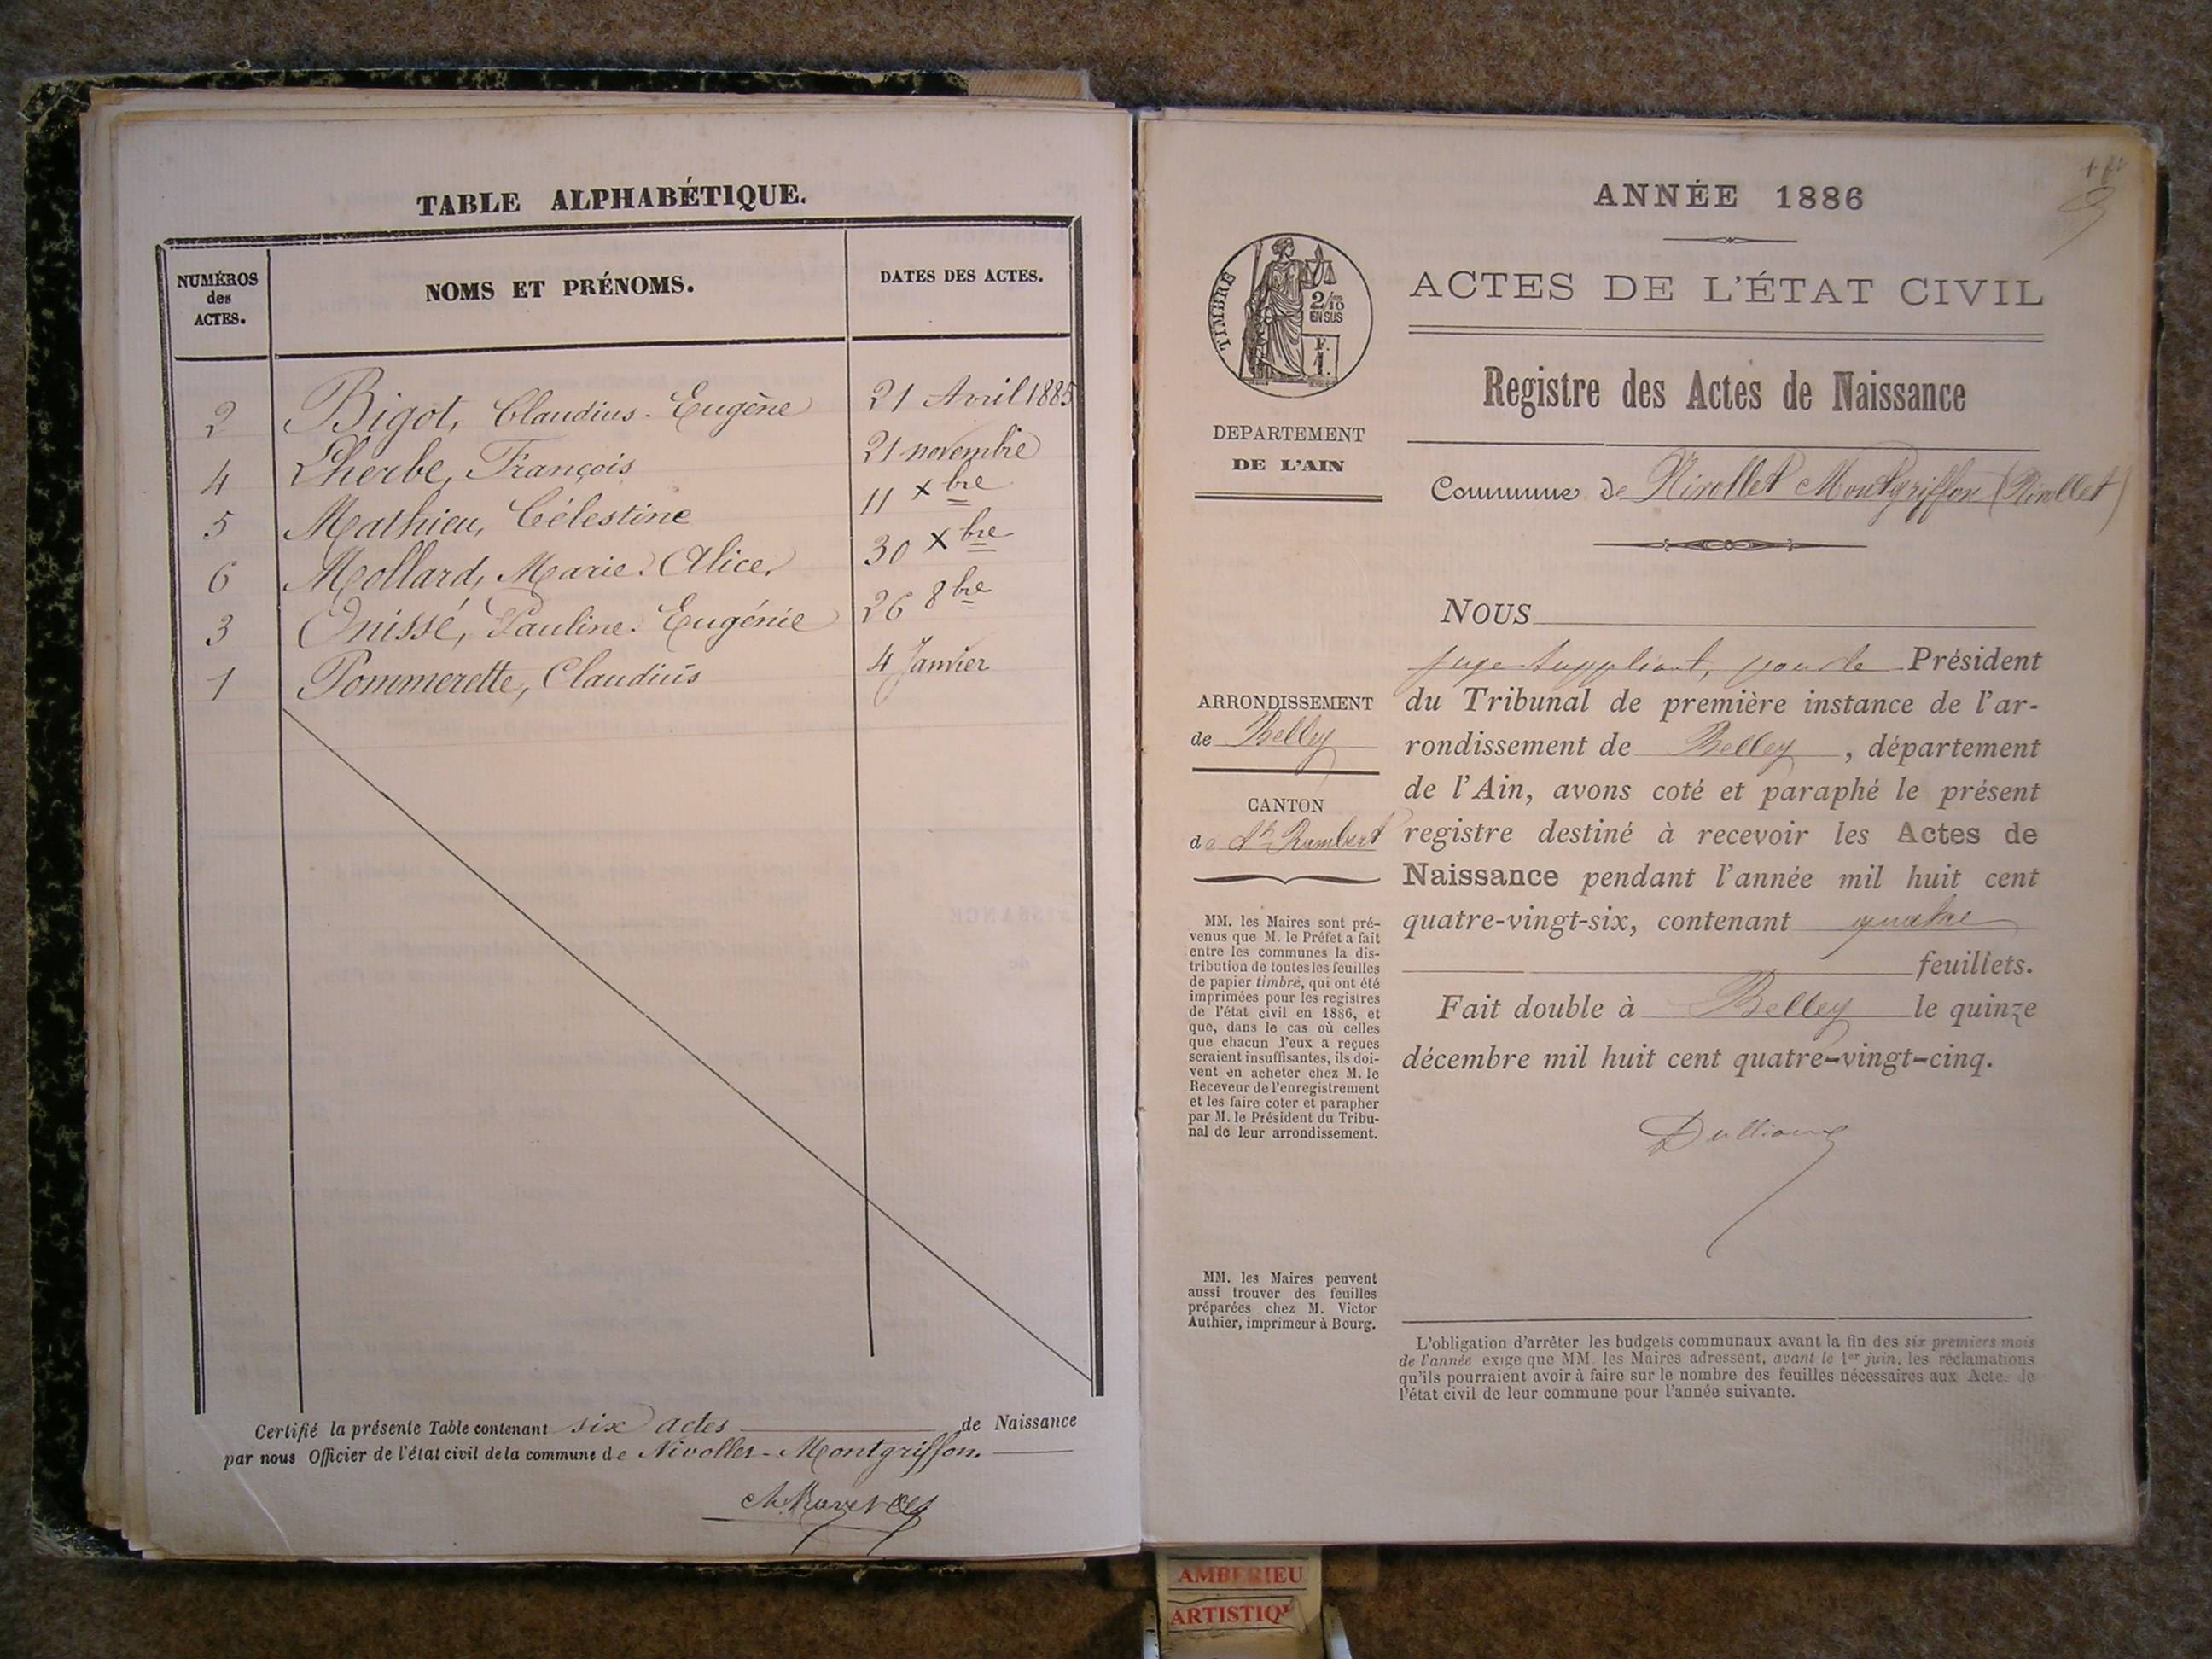 TABLE ALPHABÉTIQUE.
NUMÉROS
des
ACTES.
NOMS ET PRÉNOMS.
DATES DES ACTES.
2 Bigot, Claudius-Eugène 21 Avril 1885
4 Lherbe, François 21 novembre
5 Mathieu, Célestine 11 Xbre
6 Mollard, Marie-Alice, 30 Xbre
3 Onissé, Pauline-Eugénie 26 8bre
1 Pommerette, Claudius 4 Janvier
Certifié la présente Table contenant six actes de Naissance
par nous Officier de l'état civil de la commune de Nivollet-Montgriffon.
ANNÉE 1886
TIMBRE
2/10
EN SUS
F.
1.
ACTES DE L'ÉTAT CIVIL
Registre des Actes de Naissance
DEPARTEMENT
DE L'AIN
Commune de Nivollet Montgriffon (Nivollet)
NOUS
juge suppléant, pour le Président
du Tribunal de première instance de l'ar-
rondissement de Belley, département
de l'Ain, avons coté et paraphé le présent
registre destiné à recevoir les Actes de
Naissance pendant l'année mil huit cent
quatre-vingt-six, contenant quatre
feuillets.
Fait double à Belley le quinze
décembre mil huit cent quatre-vingt-cinq.
ARRONDISSEMENT
de Belley
CANTON
de St Rambert
MM. les Maires sont pré-
venus que M. le Préfet a fait
entre les communes la dis-
tribution de toutes les feuilles
de papier timbré, qui ont été
imprimées pour les registres
de l'état civil en 1886, et
que, dans le cas où celles
que chacun d'eux a reçues
seraient insuffisantes, ils doi-
vent en acheter chez M. le
Receveur de l'enregistrement
et les faire coter et parapher
par M. le Président du Tribu-
nal de leur arrondissement.
MM. les Maires peuvent
aussi trouver des feuilles
préparées chez M. Victor
Authier, imprimeur à Bourg.
L'obligation d'arrêter les budgets communaux avant la fin des six premiers mois
de l'année exige que MM. les Maires adressent, avant le 1er juin, les réclamations
qu'ils pourraient avoir à faire sur le nombre des feuilles nécessaires aux Actes de
l'état civil de leur commune pour l'année suivante.
AMBERIEU
ARTISTIQ